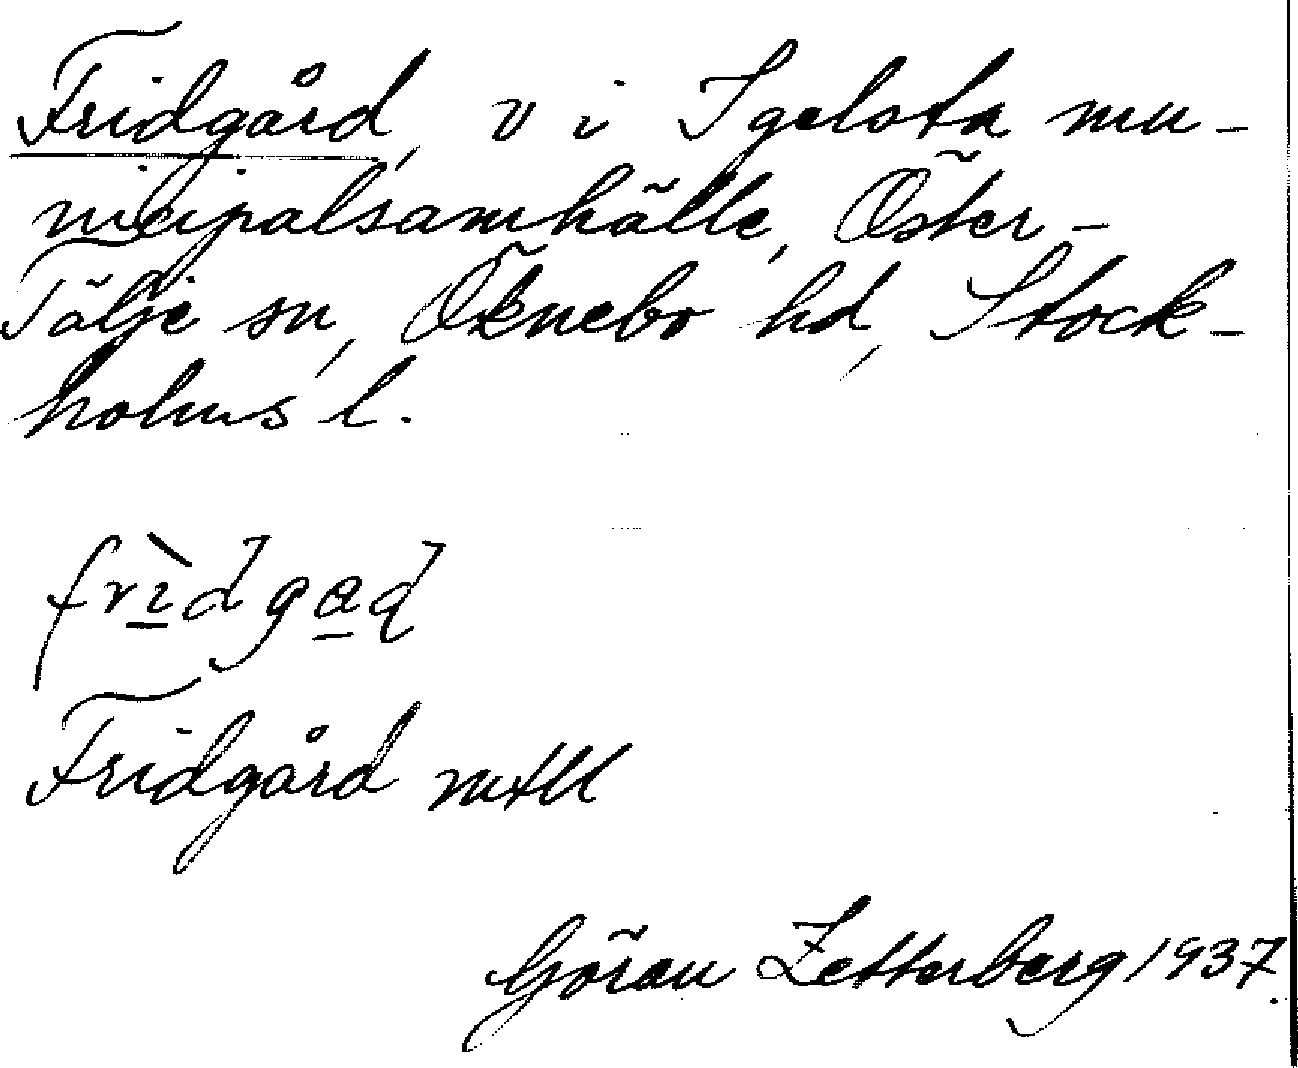 Fridgård, v i Igelsta mu-
nicipalsamhälle, Öster-
Tälje sn, Öknebo hd, Stock-
holms l.
frìdgaḍ
Fridgård mtll
Göran Zetterberg 1937.